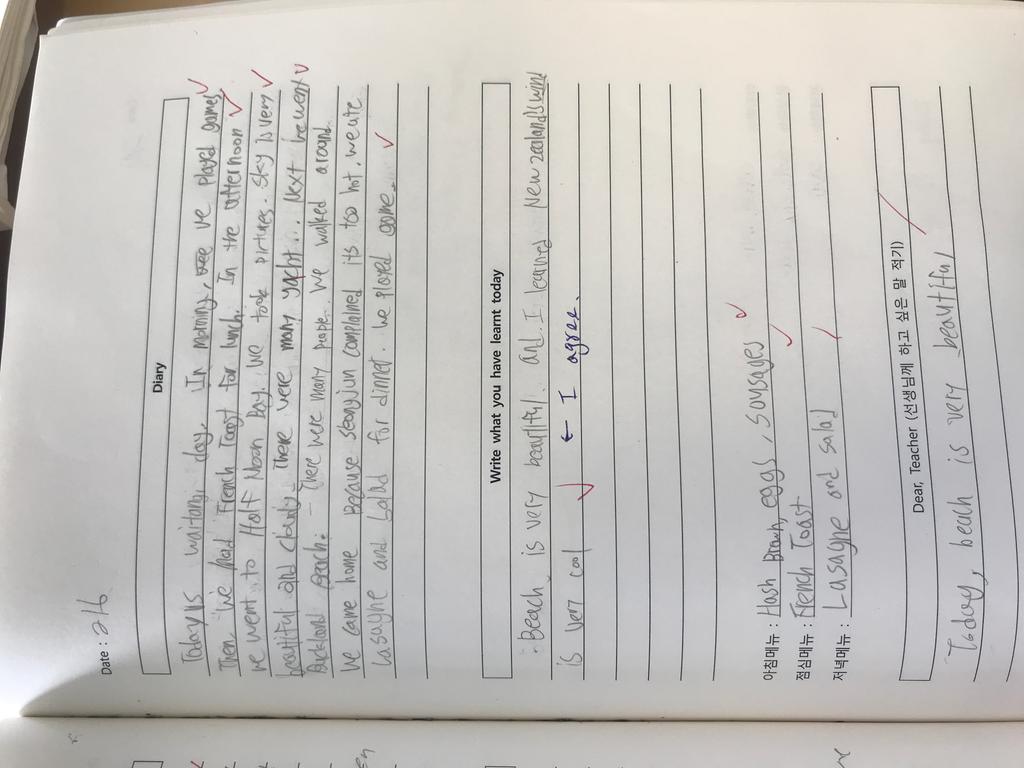 Date : 2/6
Diary
Today is waitangi day. In morning, we played games
Then, we had French Toast for lunch. In the afternoon
we went to Half Moon Bay. We took pictures. Sky is very
beautiful and cloudy. There were many yacht... Next we went
Buckland Beach. There were many people. We walked around.
We came home Because Seongjun complained its too hot. we ate
lasagne and salad for dinner. We played game.
Write what you have learnt today
Beach is very beautiful. and I learned New zealand's wind
is very cool ← I agree.
아침메뉴 : Hash Brown, eggs, Sousages
점심메뉴 : French Toast
저녁메뉴 : Lasagne and salad
Dear, Teacher (선생님께 하고 싶은 말 적기)
Today, beach is very beautiful